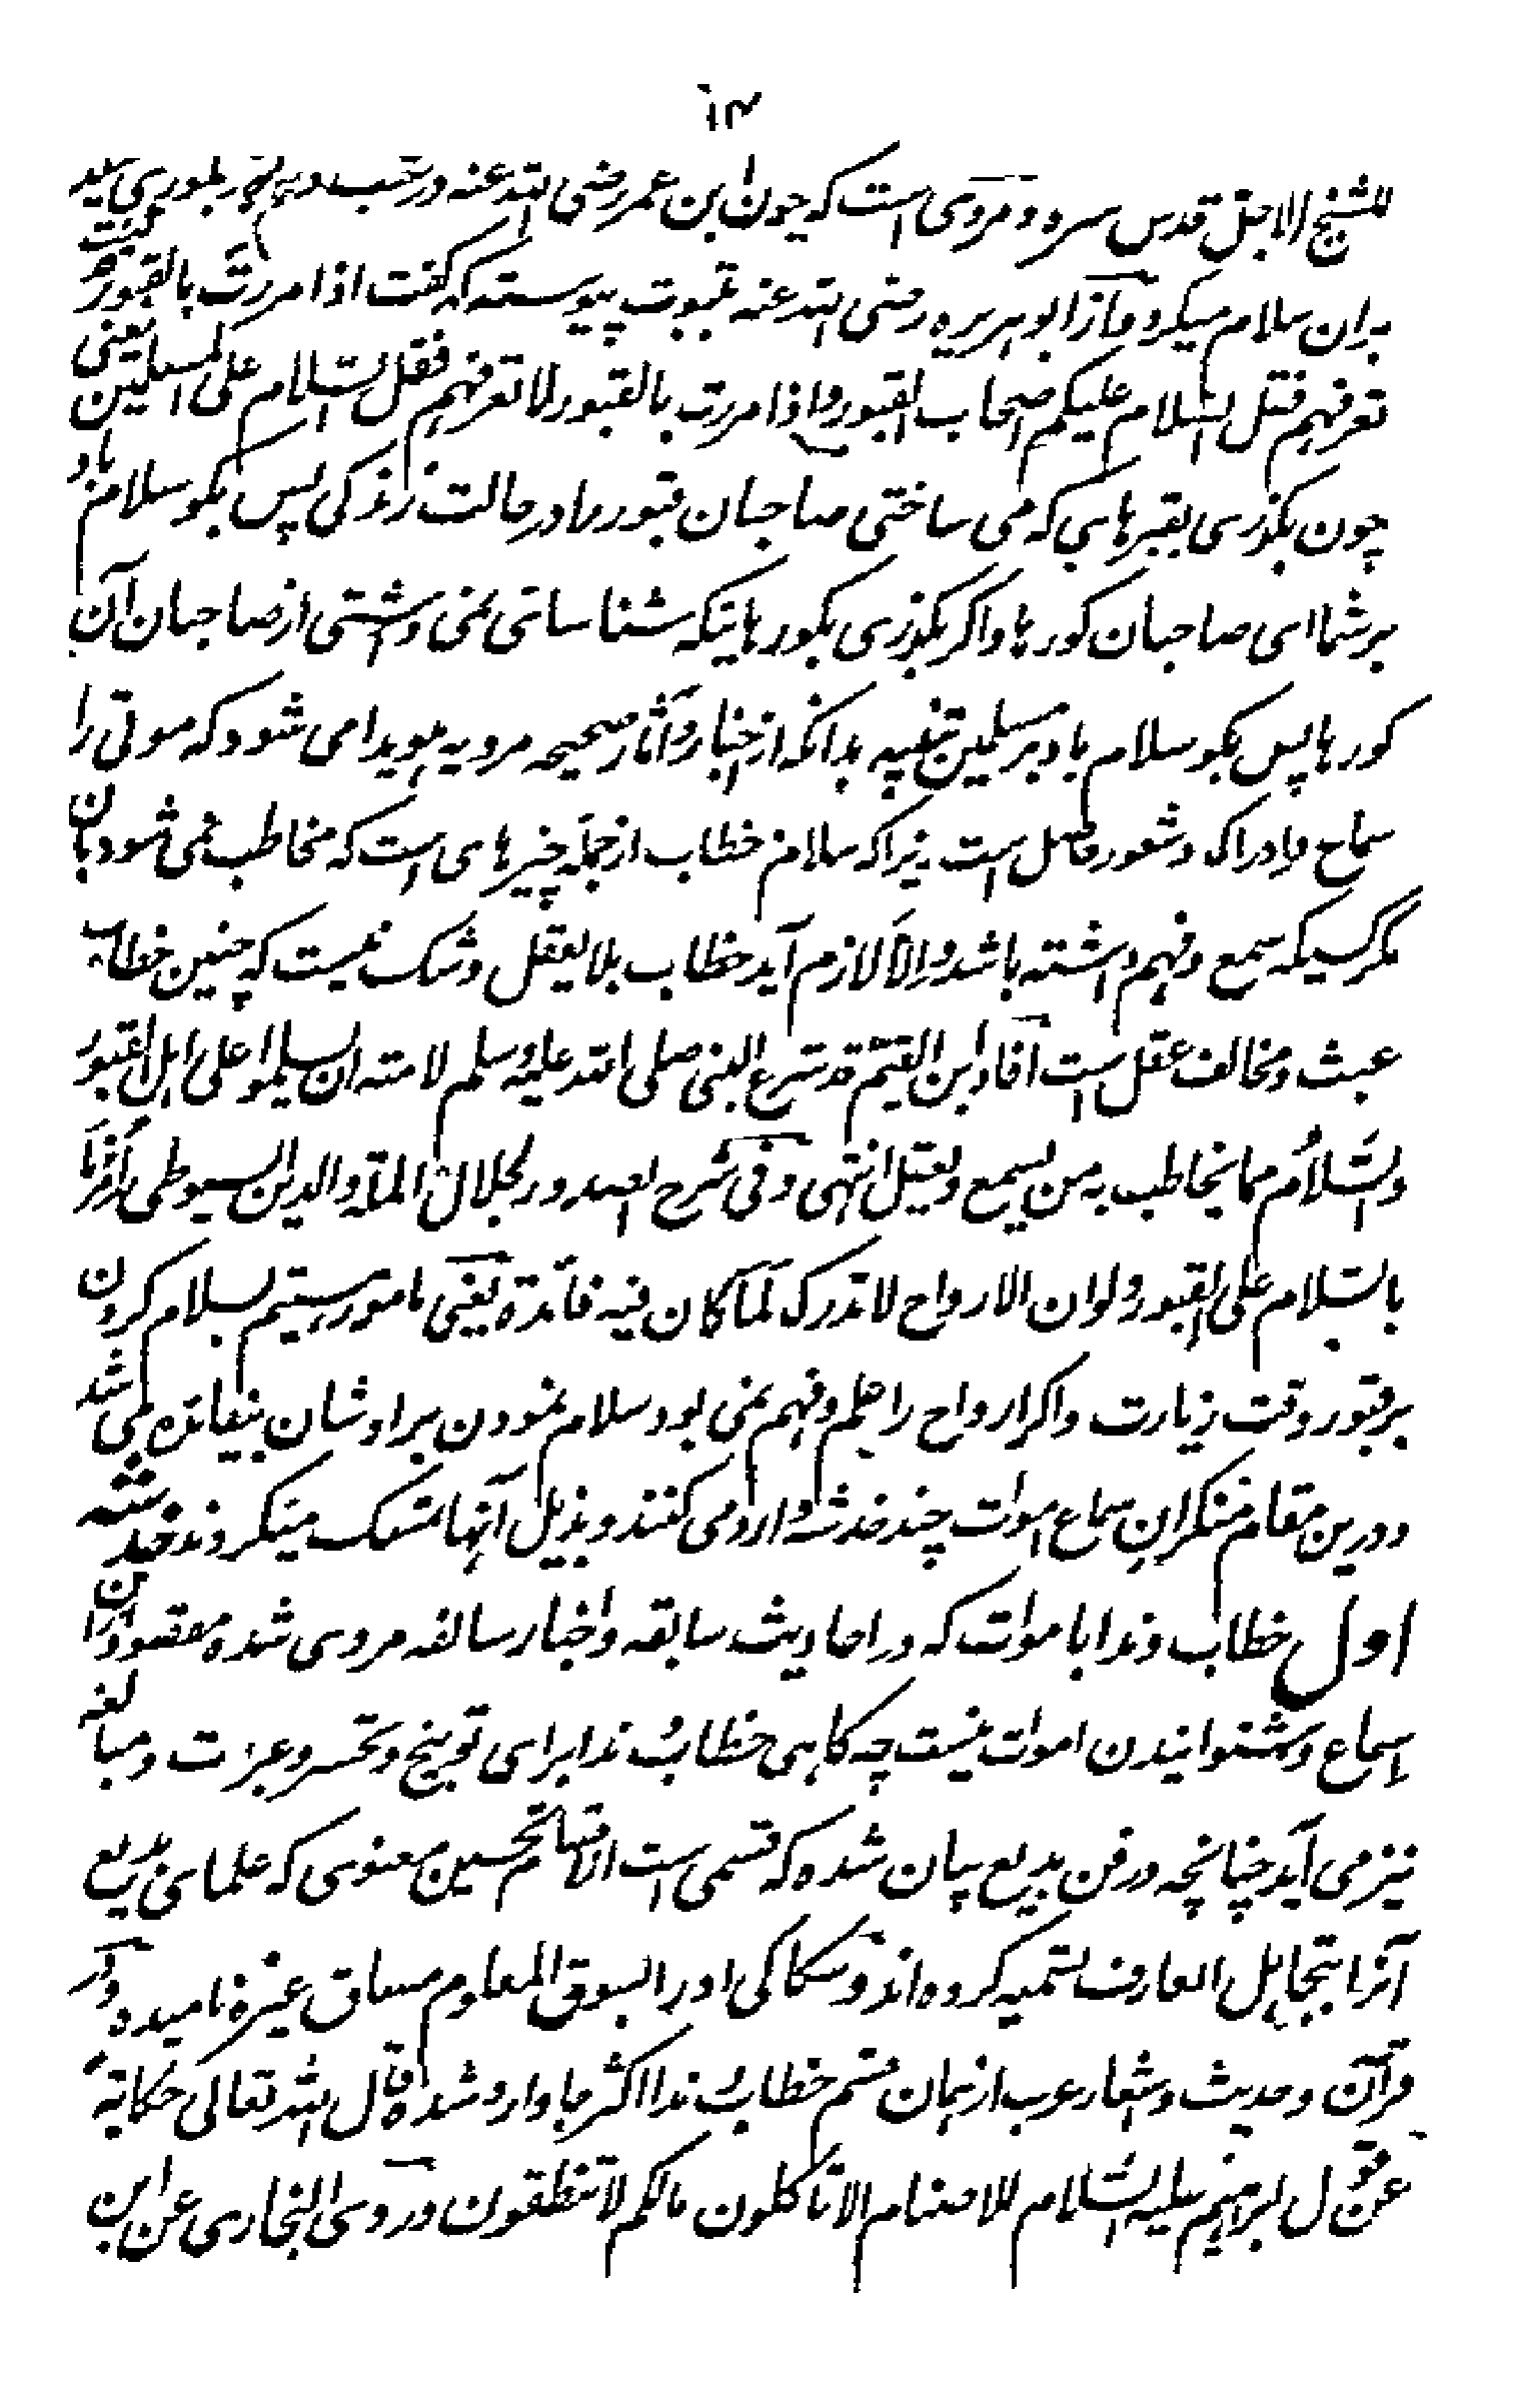 ۱۳
للشیخ الاجل قدس سره و مروی است که چون ابن عمر رضی الله عنه در شب و روز بگوری رسید
بران سلام میکرد و از ابو هریره رضی الله عنه بثبوت پیوسته که گفت اذا مررت بالقبور کنت
تعرفهم فقل السلام علیکم اصحاب القبور و اذا مررت بالقبور لا تعرفهم فقل السلام علی المسلمین یعنی
چون بگذری بقبرهای که می ساختی صاحبان قبور را در حالت زندگی پس بگو سلام باد
بر شما ای صاحبان کورها و اگر بگذری بکورهاییکه شناسائی نمی داشتی از صاحبان آن
کورها پس بگو سلام باد بر مسلمین تنبیه بدانکه از اخبار و آثار صحیحه مرویه هویدا می شود که موتی را
سماع و ادراک و شعور حاصل است زیراکه سلام خطاب از جمله چیزهای است که مخاطب نمی شود بان
مگر کسیکه سمع و فهم داشته باشد و الا لازم آید خطاب بلا یعقل و شک نیست که چنین خطاب
عبث و مخالف عقل است افاد ابن القیم قد شرع النبی صلی الله علیه و سلم لامته ان یسلموا علی اهل القبور
والسلام مما یخاطب به من یسمع و یعقل انتهی و فی شرح الصدور لجلال الملة والدین السیوطی امرنا
بالسلام علی القبور و لو ان الارواح لا تدرک لما کان فیه فائدة یعنی مامور هستیم بسلام کردن
بر قبور وقت زیارت و اگر ارواح را علم و فهم نمی بود سلام نمودن بر اوشان بیفائده می شد
و درین مقام منکران سماع اموات چند خدشه وارد می کنند و بذیل آنها متمسک میگردند خدشه
اول خطاب و ندا باموات که در احادیث سابقه و اخبار سالفه مروی شده مقصود ازان
اسماع و شنوانیدن اموات نیست چه کاهی خطاب و ندا برای توبیخ و تحسر و عبرت و مبالغه
نیز می آید چنانچه در فن بدیع بیان شده که قسمی است از اقسام تحسین معنوی که علمای بدیع
آنرا بتجاهل العارف تسمیه کرده اند و سکاکی او را بسوق المعلوم مساق غیره نامیده و در
قرآن و حدیث و اشعار عرب ازهمان قسم خطاب و ندا اکثر جا وارد شده قال الله تعالی حکایة
عن قول ابراهیم علیه السلام للاصنام الا تاکلون مالکم لا تنطقون و روی البخاری عن ابن